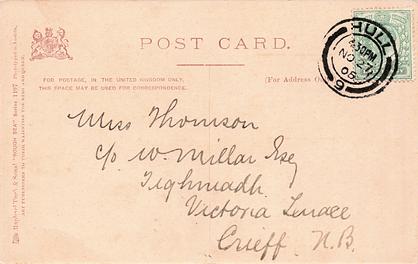 POST CARD.
FOR POSTAGE, IN THE UNITED KINGDOM ONLY,
THIS SPACE MAY BE USED FOR CORRESPONDENCE.
(For Address On
HULL
2.30PM
NO 2
05
9
Miss Thomson
c/o W. Millar Esq
Tighnuadh
Victoria Terrace
Crieff N.B.
Raphael Tuck & Sons' "ROUGH SEA" Series 1197
ART PUBLISHERS TO THEIR MAJESTIES THE KING AND QUEEN